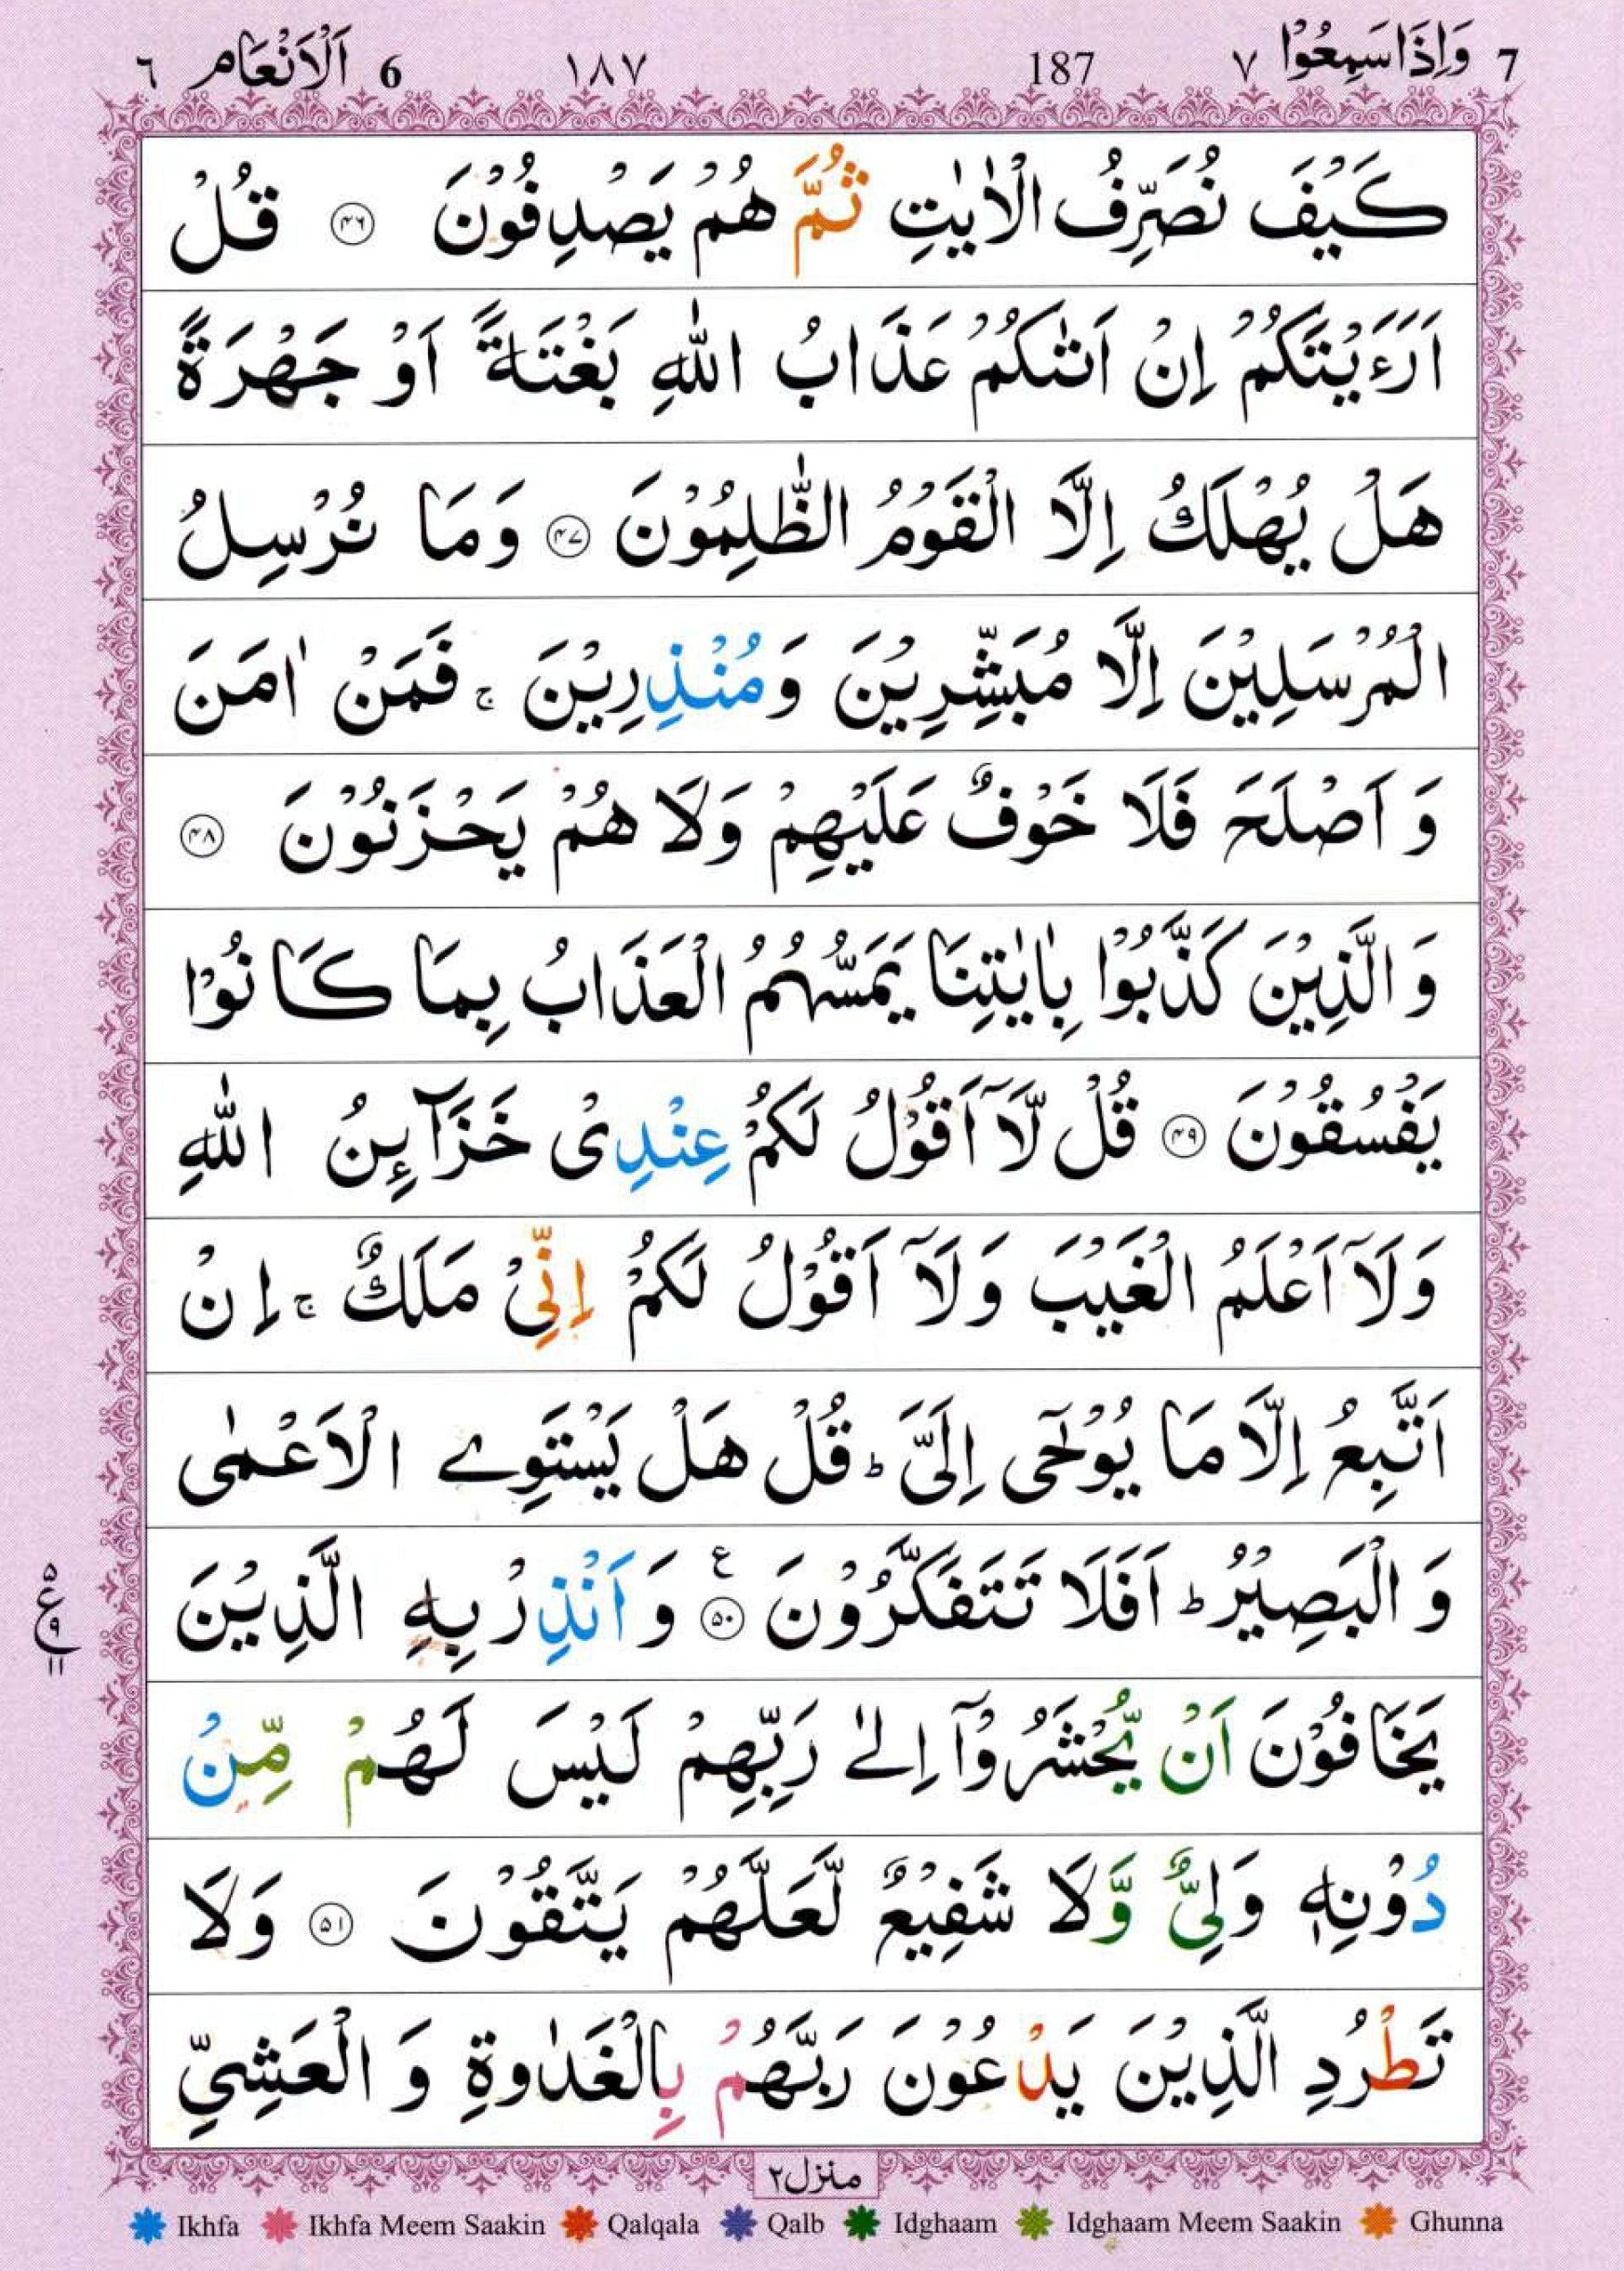 7 وَاِذَا سَمِعُوْا ٧ 187 ١٨٧ 6 اَلْاَنْعَام ٦
كَيْفَ نُصَرِّفُ الْاٰيٰتِ ثُمَّ هُمْ يَصْدِفُوْنَ ﴿٤٦﴾ قُلْ
اَرَءَيْتَكُمْ اِنْ اَتٰىكُمْ عَذَابُ اللّٰهِ بَغْتَةً اَوْ جَهْرَةً
هَلْ يُهْلَكُ اِلَّا الْقَوْمُ الظّٰلِمُوْنَ ﴿٤٧﴾ وَمَا نُرْسِلُ
الْمُرْسَلِيْنَ اِلَّا مُبَشِّرِيْنَ وَمُنْذِرِيْنَ ۚ فَمَنْ اٰمَنَ
وَ اَصْلَحَ فَلَا خَوْفٌ عَلَيْهِمْ وَلَا هُمْ يَحْزَنُوْنَ ﴿٤٨﴾
وَ الَّذِيْنَ كَذَّبُوْا بِاٰيٰتِنَا يَمَسُّهُمُ الْعَذَابُ بِمَا كَانُوْا
يَفْسُقُوْنَ ﴿٤٩﴾ قُلْ لَّاۤ اَقُوْلُ لَكُمْ عِنْدِىْ خَزَآئِنُ اللّٰهِ
وَلَاۤ اَعْلَمُ الْغَيْبَ وَلَاۤ اَقُوْلُ لَكُمْ اِنِّىْ مَلَكٌ ۚ اِنْ
اَتَّبِعُ اِلَّا مَا يُوْحٰٓى اِلَىَّ ؕ قُلْ هَلْ يَسْتَوِے الْاَعْمٰى
وَ الْبَصِيْرُ ؕ اَفَلَا تَتَفَكَّرُوْنَ ﴿٥٠﴾ ع وَ اَنْذِرْ بِهِ الَّذِيْنَ
٥ ع ٩ ١١
يَخَافُوْنَ اَنْ يُّحْشَرُوْۤا اِلٰى رَبِّهِمْ لَيْسَ لَهُمْ مِّنْ
دُوْنِهٖ وَلِىٌّ وَّلَا شَفِيْعٌ لَّعَلَّهُمْ يَتَّقُوْنَ ﴿٥١﴾ وَلَا
تَطْرُدِ الَّذِيْنَ يَدْعُوْنَ رَبَّهُمْ بِالْغَدٰوةِ وَ الْعَشِىِّ
منزل ٢
Ikhfa Ikhfa Meem Saakin Qalqala Qalb Idghaam Idghaam Meem Saakin Ghunna